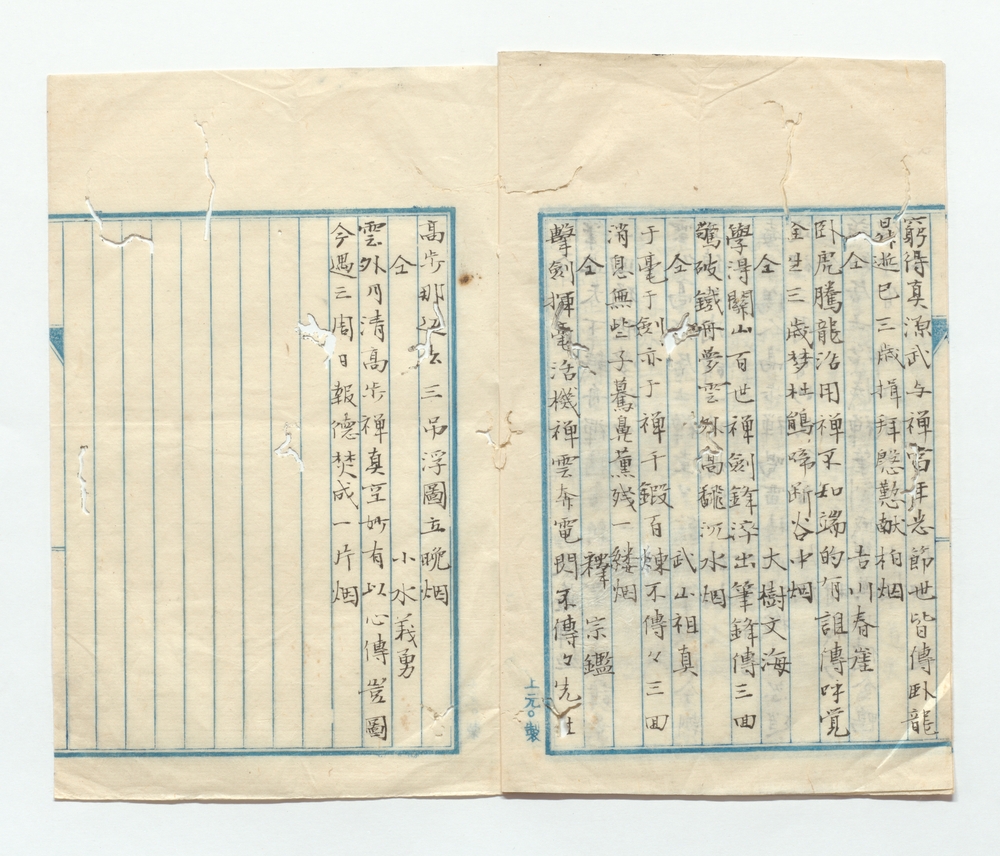 窮得真源武与禅当年志節世皆傳臥龍
昇逝已三歳揖拜慇懃献柏烟
仝 吉川春崖
臥虎騰龍活用禅不知端的有誰傳呼覚
全生三歳梦杜鵑啼断谷中烟
仝 大樹文海
學得関山百世禅剣鋒淬出筆鋒傳三回
驚破鐵舟夢雲外高飜沉水烟
仝 武山祖真
于毫于劍亦于禅千鍛百煉不傳々三回
消息無些子驀鼻薫残一縷烟
仝 釋宗鑑
擊劍揮毫活機禅雲奔電閃不傳々先生
高歩那辺去三吊浮圖立晩烟
仝 小水義勇
雲外月清高歩禅真空妙有以心傳豈図
今遇三周日報德焚成一片烟
上元製